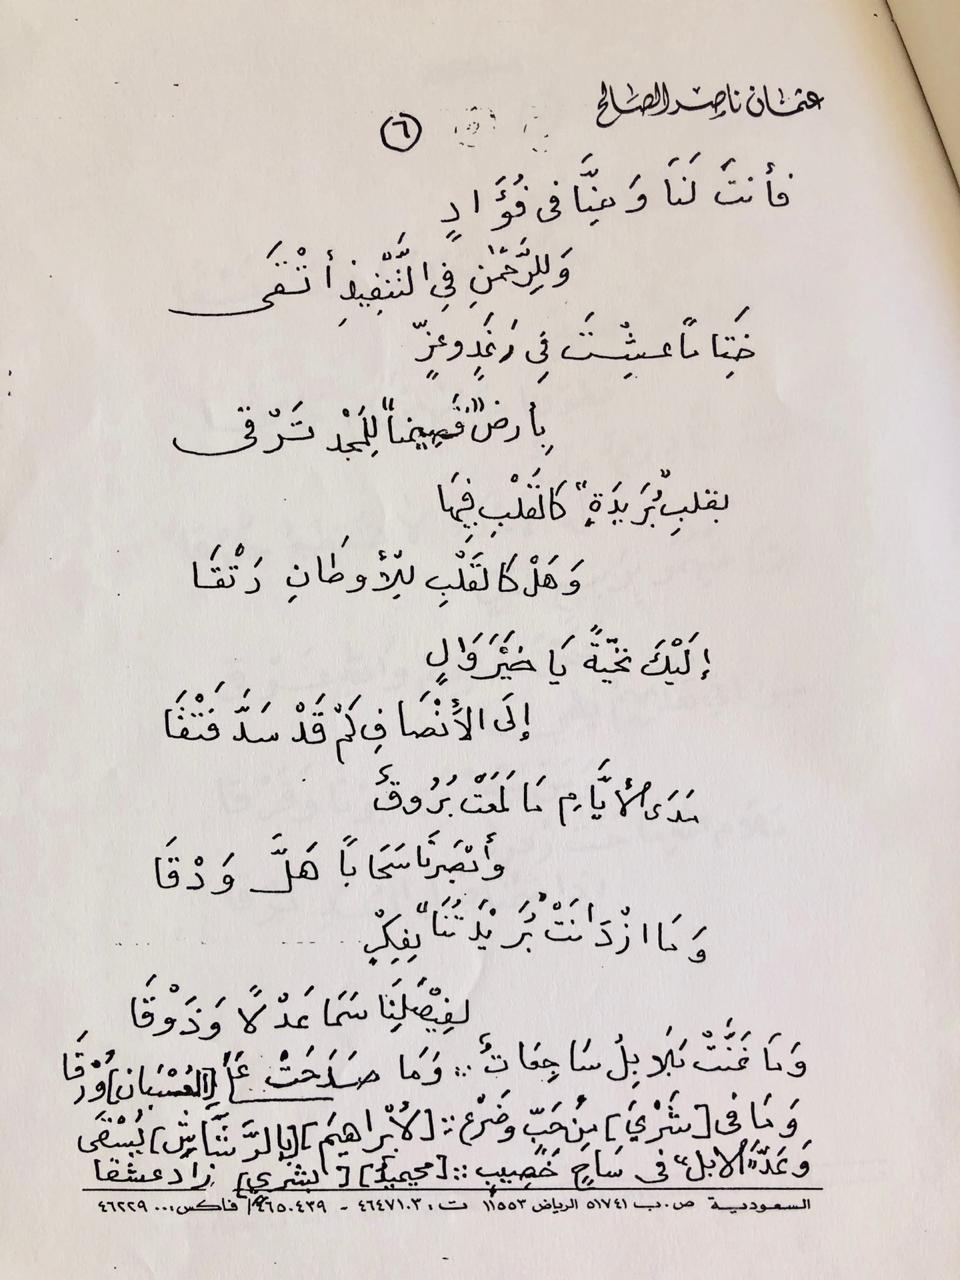 عثمان ناصر الصالح
٦
فأنتَ لَنَا وَعِنَّا فى فُؤَادٍ
وَلِلرَّحْمٰنِ فِي التَّنْفِيذِ أَتْقَى
خَتِامًا عِشْتَ فِي رَغَدٍ وعِزٍّ
بِأرض "قَصِيمنا" لِلمَجْد تَرْقى
بقلبِ "بُرَيدَةٍ" كالقَلْبِ فِيهَا
وَهَلْ كالقَلْبِ لِلأوطَانِ رَتْقَا
إلَيْكَ تحَيّةً يَا خَيْرَ وَالٍ
إلَى الأَنْصَافِ كَمْ قَدْ سَدَّ فَتْقَا
مَدَى الأيَّامِ مَا لَمَعَتْ بُرُوقٌ
وأبْصَرنَا سَحَابًا هَلَّ وَدْقَا
وَمَا ازْدَانَتْ "بُرَيْدَتُنَا" بِفِكْرٍ
لِفَيْصَلِنَا سَمَا عَدْلًا وَذَوْقَا
وَمَا غَنَّتْ بَلَابِلُ سَاجِعَاتٌ :: وَمَا صَدَحَتْ عَلَى [العُسْبَانِ] وُرْقَا
وَمَا فى [شَرْيٍ] مِنْ حَبّ وضَرْعٍ :: [لأبْراهيم] [بالرَّشَّاشِ] يُسْقَى
وَعَدَّ "الابل" فى سَاحٍ خَصِيبٍ :: [محيميد] [بشري] زاد عشقا
السعودية ص.ب ٥١٧٤١ الرياض ١١٥٥٣ ت: ٤٦٤٧١٠٣ - ٤٦٥٠٤٣٩ / فاكس: ٤٦٢٢٩٠٠